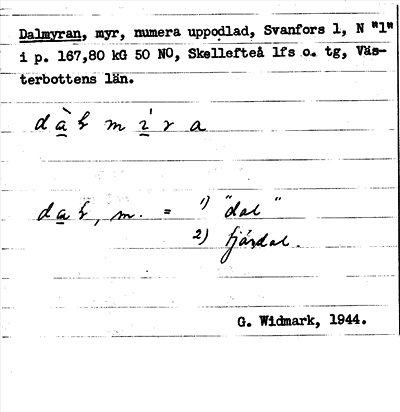 Dalmyran, myr, numera uppodlad, Svanfors 1, N "1"
i p. 167,80 kG 50 NO, Skellefteå lfs o. tg, Väs-
terbottens län.
dàɫ mɩ́ra
daɫ, m. = 1) "dal"
2) fjärdal.
G. Widmark, 1944.